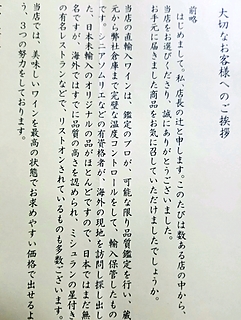 大切なお客様へのご挨拶
前略
はじめまして。私、店長の辻と申します。このたびは数ある店の中から、
当店をお選びくださり、誠にありがとうございました。
お手元に届きました商品、お気に召していただけましたでしょうか。
当店の直輸入ワインは、鑑定のプロが、可能な限り品質鑑定を行い、蔵
元から弊社倉庫まで完璧な温度コントロールをして、輸入保管したもの
です。シニアソムリエなどの有資格者が、海外の現地を訪問し探し出し
た、日本未輸入のオリジナルの品がほとんどですので、日本ではまだ無
名ですが、海外ではすでに品質の高さを認められ、ミシュランの星付き
の有名レストランなどで、リストオンされているものも多数ございます。
当店では、美味しいワインを最高の状態でお求めやすい価格で出せるよ
う、３つの努力をしております。